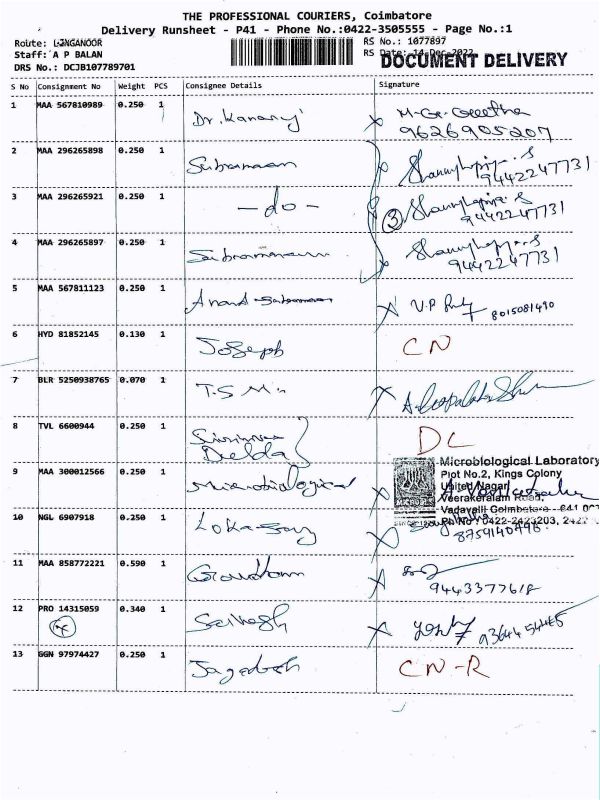 THE PROFESSIONAL COURIERS, Coimbatore
Delivery Runsheet - P41 - Phone No.:0422-3505555 - Page No.:1
Route: LINGANOOR RS No.: 1077897
Staff: A P BALAN RS Date: 14-Dec-2022 DOCUMENT DELIVERY
DRS No.: DCJB107789701
S No Consignment No Weight PCS Consignee Details Signature
1 MAA 567810989 0.250 1 Dr. Kanaraj
9626905207
2 MAA 296265898 0.250 1 Subramaniam
9442247731
3 MAA 296265921 0.250 1 -do- 3
9442247731
4 MAA 296265897 0.250 1
9442247731
5 MAA 567811123 0.250 1 Anand V.P
8015081490
6 HYD 81852145 0.130 1 Joseph CN
7 BLR 5250938765 0.070 1
8 TVL 6600944 0.250 1 DL
9 MAA 300012566 0.250 1 Microbiological
Microbiological Laboratory
Plot No.2, Kings Colony
United Nagar
Veerakeralam Road,
Vadavalli Coimbatore
Ph No : 0422-2423203,
10 NGL 6907918 0.250 1
8759140496
11 MAA 858772221 0.590 1 Gowtham
9443377612
12 PRO 14315059 0.340 1
13 GGN 97974427 0.250 1 Jagadesh CN-R